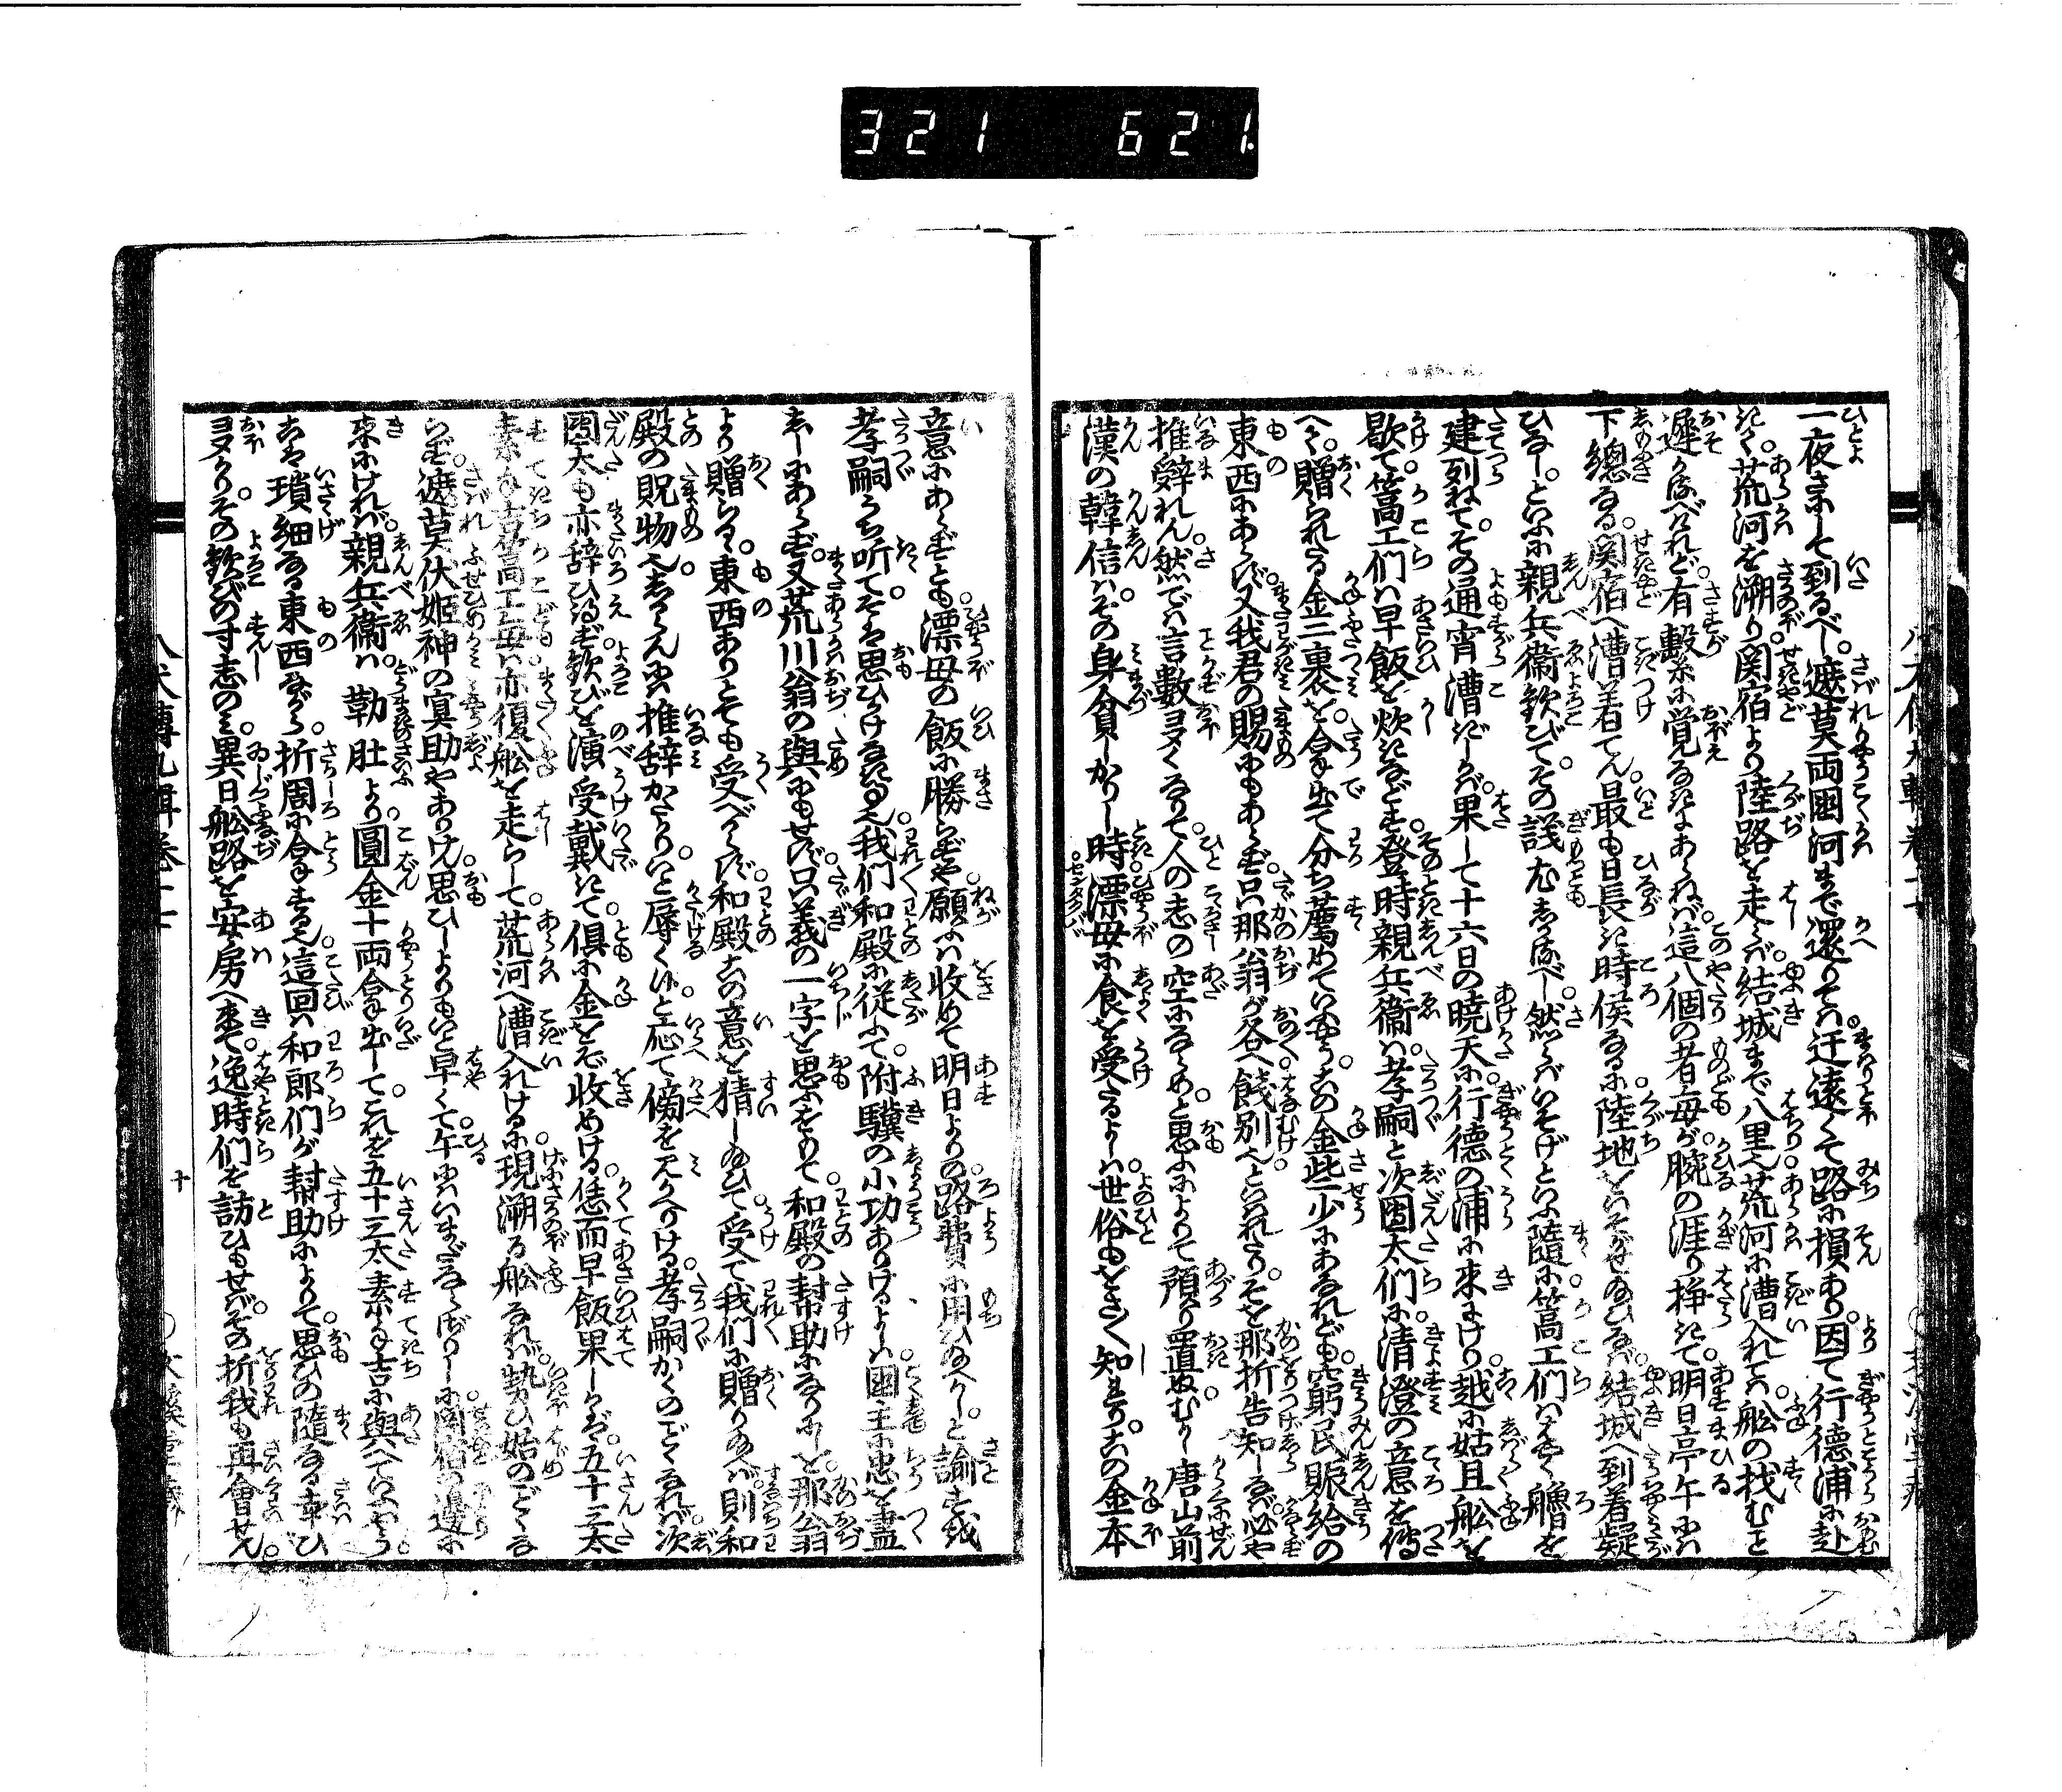 321 621
一夜さにして到るべし。遮莫両国河まで還りては。迂遠くて路に損あり。因て行徳浦に赴
きて。荒河を溯り。関宿より陸路を走らば。結城まで八里也。荒河に漕入れては。船の找むこと
遅かるべけれど。有繋に覚あるにあらねば。這八個の者毎が。腕の涯り挣ぎて。明日亭午には
下総なる。関宿へ漕着てん。最も日長き時候なるに。陸地をいそがせ給ひなば。結城へ到着疑
ひなし。といふに親兵衛歓びて。その議尤しかるべし。然らばいそげといふ随に。篙工們ははやく艪を
建列ねて。その通宵漕ぎしかば。果して十六日の暁天に。行徳の浦に来にけり。越に姑且船を
歇て。篙工們は早飯を炊きなどす。登時親兵衛は。孝嗣と次団太們に。清澄の意を傳
へて。贈られたる金三裹を。拿出て分ち薦めていふやう。この金些少にあなれども。窮民賑給の
東西にあらず。又我君の賜にもあらず。只那翁が各へ餞別也といはれたり。そを那折告知しなば。必や
推辞れん。然では言數多くなりて。人の志の空になるらめと思ふによりて。預り置ぬむかし唐山前
漢の韓信は。その身貧しかりし時。漂母に食を受たるよしは。世俗もをさ〳〵知れり。この金本
意にあらずとも。漂母の飯に勝らずや。願ふは收めて明日よりの。路費に用ひ給へかし。と諭すを
孝嗣うち听て。そは思ひかけなき也。我們和殿に従ふて。附驥の小功ありけるよしは。国主に忠を盡
ししにあらず。又荒川翁の與にもせず。只義の一字を思ふをもて。和殿の幇助になりにしを。那翁
より贈らるゝ。東西ありとても受べからず。和殿この意を猜し給ひて。受て我們に贈り給へば。則和
殿の貺物也。しからんには推辞かたかり。いと辱くはべりと。応て傍を見かへりける。孝嗣かくのごとくなれば。次
団太も亦辞ひ得ず。歓びを演受戴きて。倶に金をぞ收めける。恁而早飯果しかば。五十三太
素手吉篙工毎は。亦復船を走らして。荒河へ漕入れけるに。現溯る船なれば。勢ひ始のごとくなら
らず。遮莫伏姫神の冥助やありけん。思ひしよりもいと早くて。午にはいまだならざりしに。関宿の邊に
来にければ。親兵衛は。勒肚より。圓金十両拿出して。これを五十三太素手吉に與へていふやう。
こは瑣細なる東西ながら。折周に拿する也。這回は和郎們が幇助によりて。思ひの隨なる幸ひ
多かり。その歓びの寸志のみ。異日船路を安房へ来て。逸時們を訪ひもせば。その折我も再會せん。
十